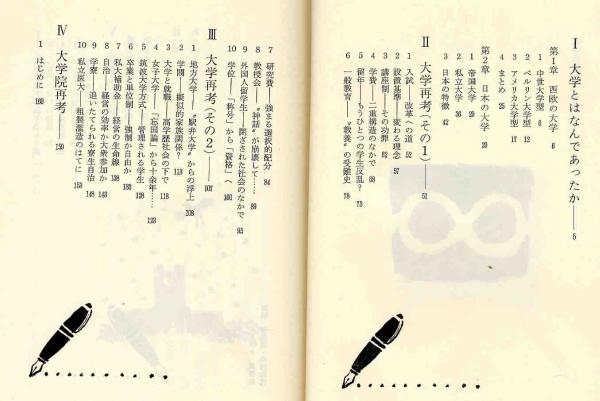 I 大学とはなんであったか——5
第1章 西欧の大学 6
1 中世大学型 6
2 ベルリン大学型 12
3 アメリカ大学型 17
4 まとめ 25
第2章 日本の大学 29
1 帝国大学 29
2 私立大学 36
3 日本の特徴 42
II 大学再考(その1)——51
1 入試——改革への道 52
2 設置基準——変わる理念 57
3 講座制——その功罪 62
4 学費——二重構造のなかで 68
5 留年——もうひとつの学生反乱? 73
6 一般教育——〝教養〟の受難史 78
7 研究費——強まる選択的配分 84
8 教授会——〝神話〟が崩壊して…… 89
9 外国人留学生——閉ざされた社会のなかで 95
10 学位——「称号」から「資格」へ 100
III 大学再考(その2)——107
1 地方大学——〝駅弁大学〟からの浮上 208
2 学閥——擬似的家族関係? 113
3 大学と就職——高学歴社会の下で 118
4 女子大学——「亡国論」から十余年…… 123
5 筑波大学方式——管理される学生 128
6 卒業と単位制——強制か自由か 133
7 私大補助金——経営の生命線 138
8 自治——経営の効率か大衆参加か 143
9 学寮——追いたてられる寮生自治 148
10 私立医大——粗製濫造のはてに 153
IV 大学院再考——159
1 はじめに 160